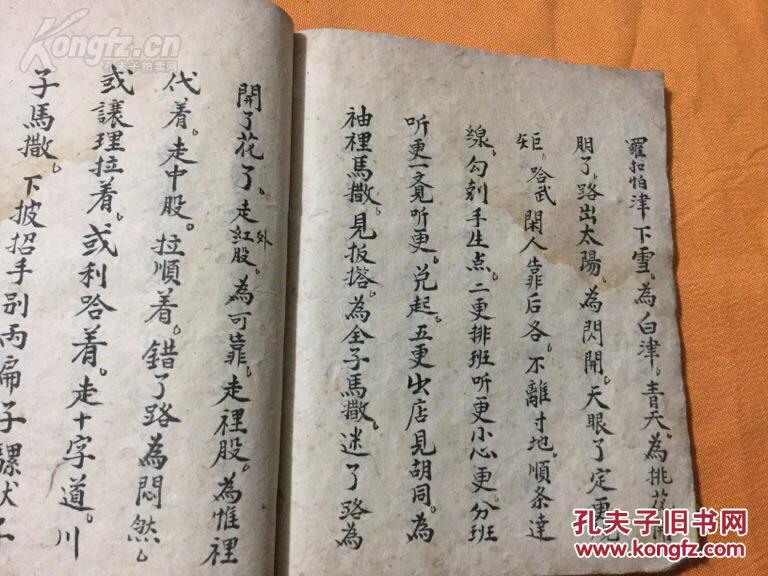 羅扣怕津下雪。為白津。青天。為挑花開
朋了。路出太陽。為閃開。天眼了定更見
矩。哈武閑人靠后各。不離寸地。順条達
線。勾剁手生点。二更排班听更小心更。分班
听更一竟听更。兑起。五更出店見胡同。為
袖裡馬撒。見扳撘。為全子馬撒。迷了路為
開了花了。走外紅股。為可靠。走裡股。為惟裡
代着。走中股。拉順着。錯了路為悶然。
或讓理拉着。或利哈着。走十字道。川
子馬撒。下披招手别两扁子騾状
Kongfz.cn
孔夫子拍卖网
孔夫子旧书网
www.kongfz.com